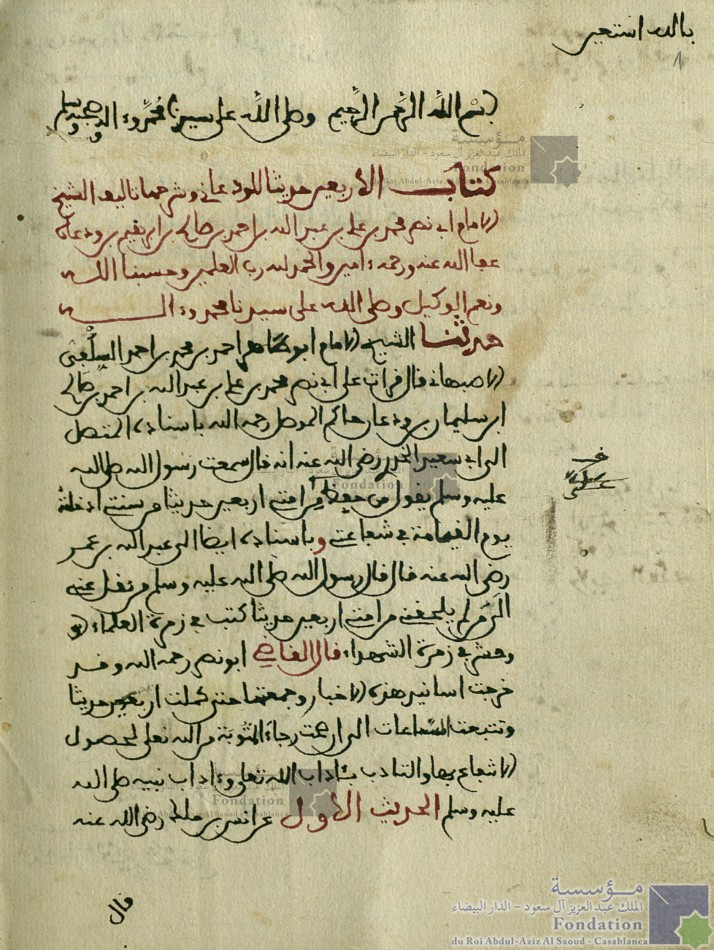 بالله استعين
١
بسم الله الرحمن الرحيم وصلى الله على سيدنا محمد وءاله وصحبه وسلم
كتاب الاربعين حديثا للودعاني وشرحها تاليف الشيخ
الامام ابي نصر محمد بن علي بن عبد الله بن احمد بن صالح بن ابرهيم بن ودعان
عفا الله عنه ورحمه ءامين والحمد لله رب العلمين وحسبنا الله
ونعم الوكيل وصلى الله على سيدنا محمد وءاله
حدثنا الشيخ الامام ابو طاهر احمد بن محمد بن احمد السلفي
الاصبهاني قال قرات على ابي نصر محمد بن علي بن عبد الله بن احمد بن صالح
ابن سليمان بن ودعان حاكم الموصل رحمه الله باسناده المتصل
الى ابي سعيد الخدري رضي الله عنه انه قال سمعت رسول الله صلى الله
عليه وسلم يقول من حفظ من امتي اربعين حديثا من سنتي ادخلته
يوم القيامة في شفاعتي وباسناده ايضا الى عبد الله بن عمر
رضي الله عنه قال قال رسول الله صلى الله عليه وسلم من نقل عني
الى من لم يلحقني من امتي اربعين حديثا كتب في زمرة العلماء
وحشر في زمرة الشهداء قال القاضي ابو نصر رحمه الله وقد
خرجت اسانيد هذه الاخبار وجمعتها حتى كملت اربعين حديثا
وتتبعت السماعات الى ان صحت رجاء المثوبة من الله تعلى لحصول
الانتفاع بها والتادب بئاداب الله تعلى وءاداب نبيه صلى الله
عليه وسلم الحديث الاول عن انس بن ملك رضي الله عنه
قال
مؤسسة
الملك عبد العزيز آل سعود - الدار البيضاء
Fondation
du Roi Abdul-Aziz Al Saoud - Casablanca